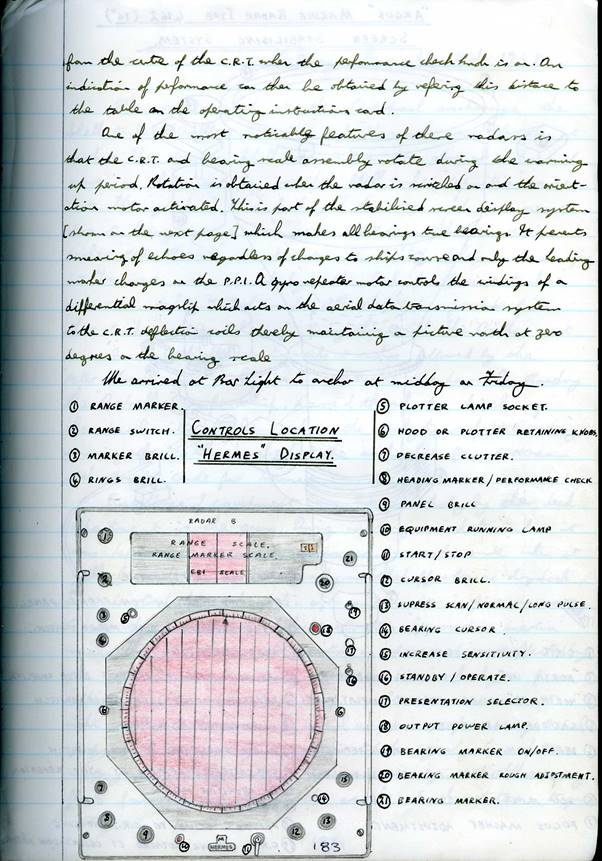 from the centre of the C.R.T. when the performance check knob is on. An
indication of performance can then be obtained by refering this distance to
the table on the operating instructions card.
One of the most noticable features of these radars is
that the C.R.T. and bearing scale assembly rotate during the warming
up period. Rotation is obtained when the radar is switched on and the orient-
ation motor activated. This is part of the stabilised screen display system
[shown on the next page] which makes all bearings true bearings. It prevents
smearing of echoes regardless of changes to ships course and only the heading
marker changes on the P.P.I. A gyro repeater motor controls the windings of a
differential magslip which acts on the aerial data transmission system
to the C.R.T. deflection coils thereby maintaining a picture north at zero
degrees on the bearing scale
We arrived at Bar Light to anchor at midday on Friday.
① RANGE MARKER.
② RANGE SWITCH.
③ MARKER BRILL.
④ RINGS BRILL.
CONTROLS LOCATION
"HERMES" DISPLAY.
⑤ PLOTTER LAMP SOCKET.
⑥ HOOD OR PLOTTER RETAINING KNOBS.
⑦ DECREASE CLUTTER.
⑧ HEADING MARKER/PERFORMANCE CHECK
⑨ PANEL BRILL
⑩ EQUIPMENT RUNNING LAMP
⑪ START/STOP
⑫ CURSOR BRILL.
⑬ SUPRESS SCAN/NORMAL/LONG PULSE.
⑭ BEARING CURSOR.
⑮ INCREASE SENSITIVITY.
⑯ STANDBY/OPERATE.
⑰ PRESENTATION SELECTOR.
⑱ OUTPUT POWER LAMP.
⑲ BEARING MARKER ON/OFF.
⑳ BEARING MARKER ROUGH ADJUSTMENT.
㉑ BEARING MARKER.
RADAR B
RANGE SCALE.
RANGE MARKER SCALE.
EBI SCALE
1
2
3
4
5
6
21
20
19
18
17
16
6
15
14
13
7
8
9
10
HERMES
11
12
83